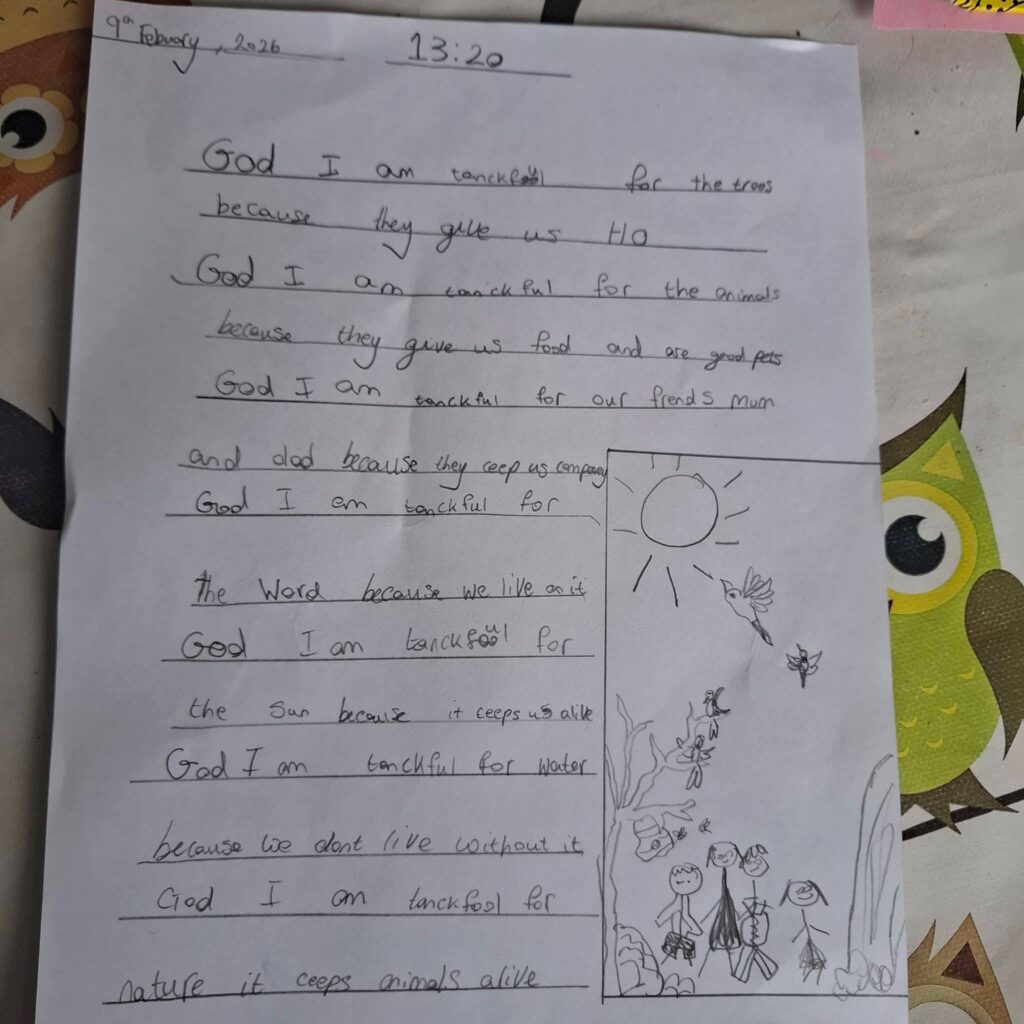 9th Febuary, 2026 13:20
God I am tanckful for the trees
because they give us HO
God I am tanckful for the animals
because they give us food and are good pets
God I am tanckful for our frends mum
and dad because they ceep us company
God I am tanckful for
the Word because we live on it
God I am tanckful for
the Sun because it ceeps us alive
God I am tanckful for water
because we dont live without it
God I am tanckfool for
nature it ceeps animals alive